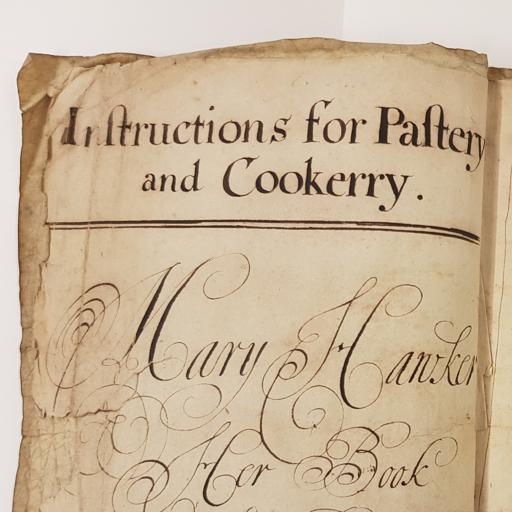 Inſtructions for Paſtery
and Cookerry.
Mary Hawker
Her Book